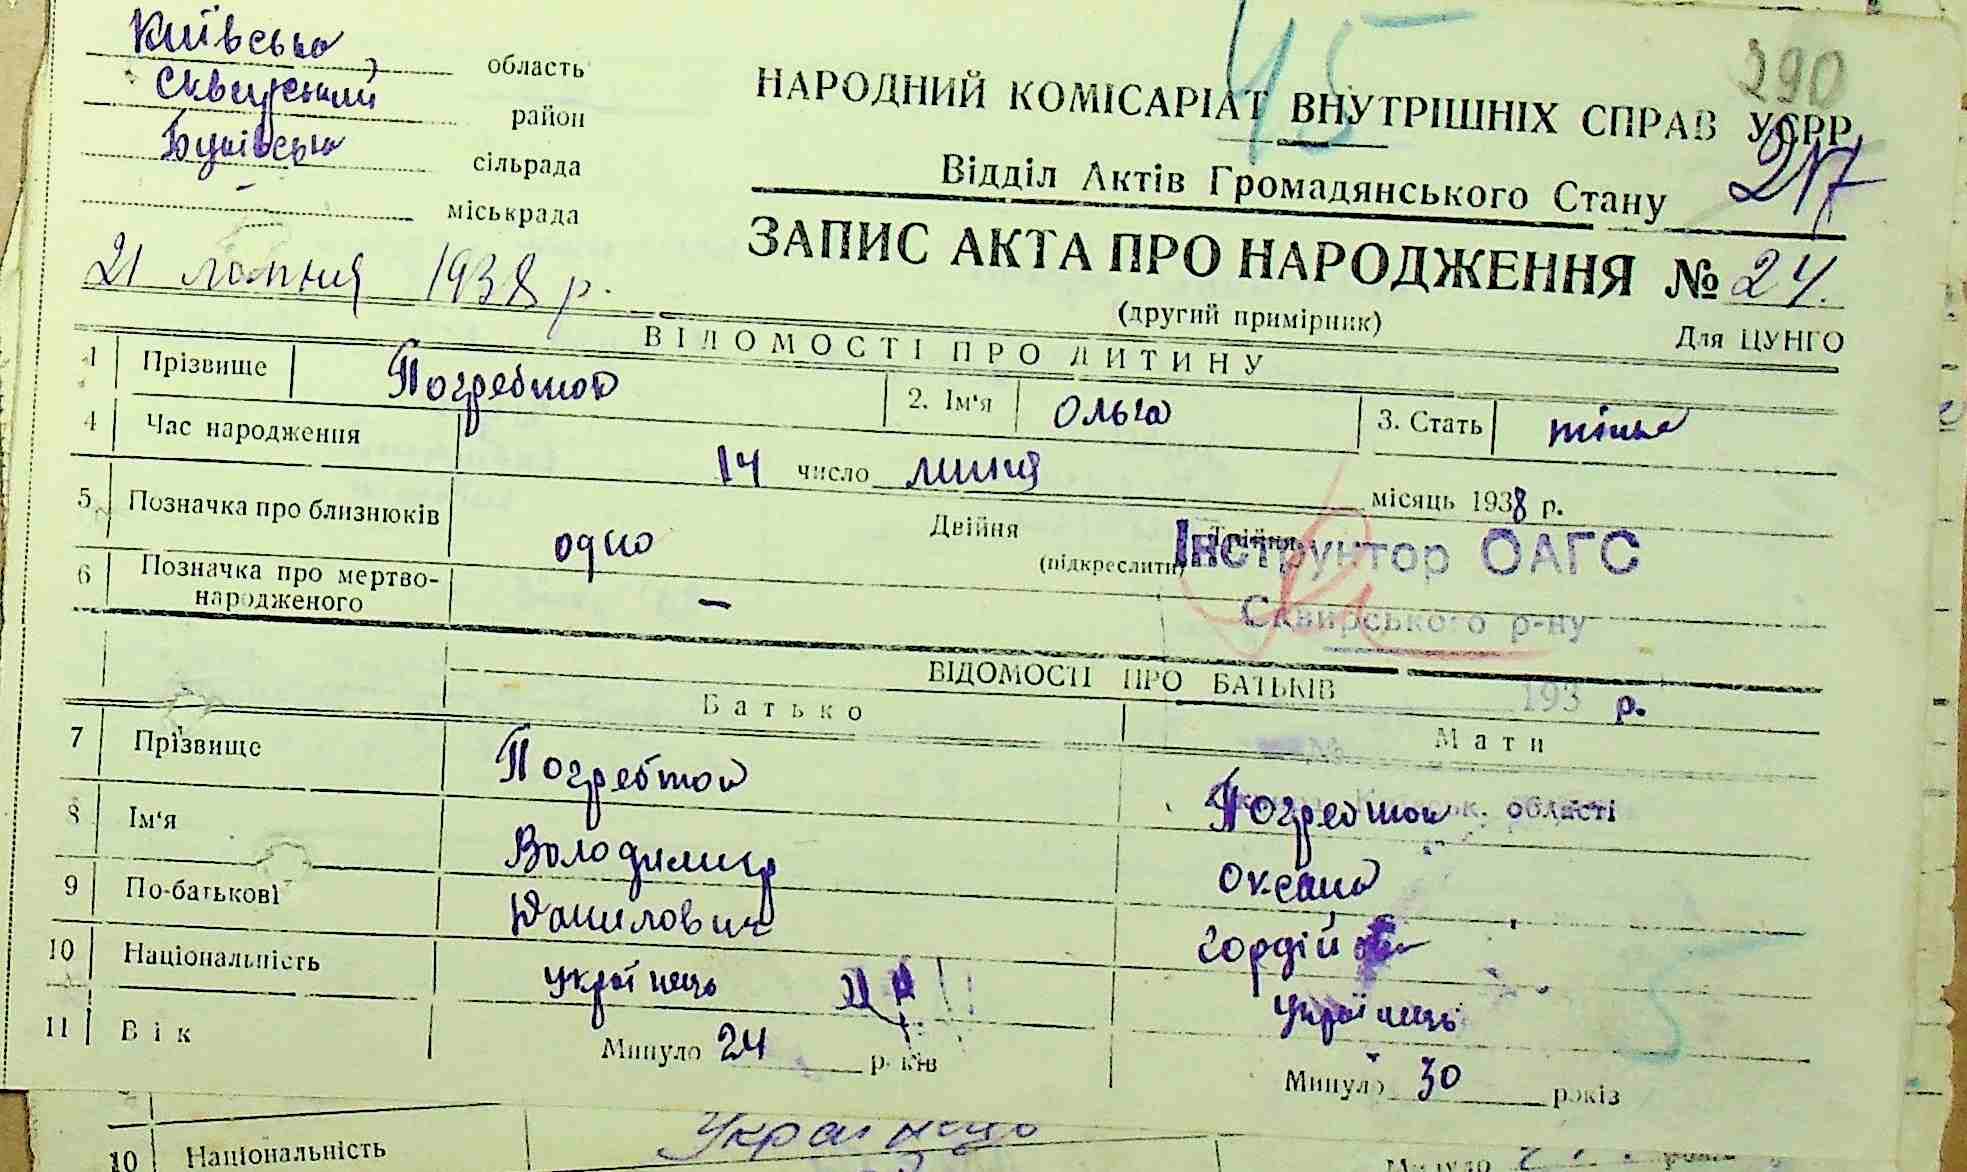 Київська область
Сквирський район
Буківська сільрада
міськрада
45
290
НАРОДНИЙ КОМІСАРІАТ ВНУТРІШНІХ СПРАВ УСРР
217
Відділ Актів Громадянського Стану
21 липня 1938 р.
ЗАПИС АКТА ПРО НАРОДЖЕННЯ № 24.
(другий примірник)
Для ЦУНГО
ВІДОМОСТІ ПРО ДИТИНУ
1 Прізвище Погребной 2. Ім'я Ольга 3. Стать
4 Час народження 14 число липня місяць 1938 р.
5 Позначка про близнюків одно Двійня Трійня
(підкреслити)
Інструктор ОАГС
6 Позначка про мертво-
народженого –
Сквирського р-ну
ВІДОМОСТІ ПРО БАТЬКІВ
193 р.
Батько Мати
7 Прізвище Погребной Погребной
області
8 Ім'я Володимир Оксана
9 По-батькові Данилович Гордій
10 Національність українець українець
11 Вік Минуло 24 років Минуло 30 років
10 Національність Українець Минуло років